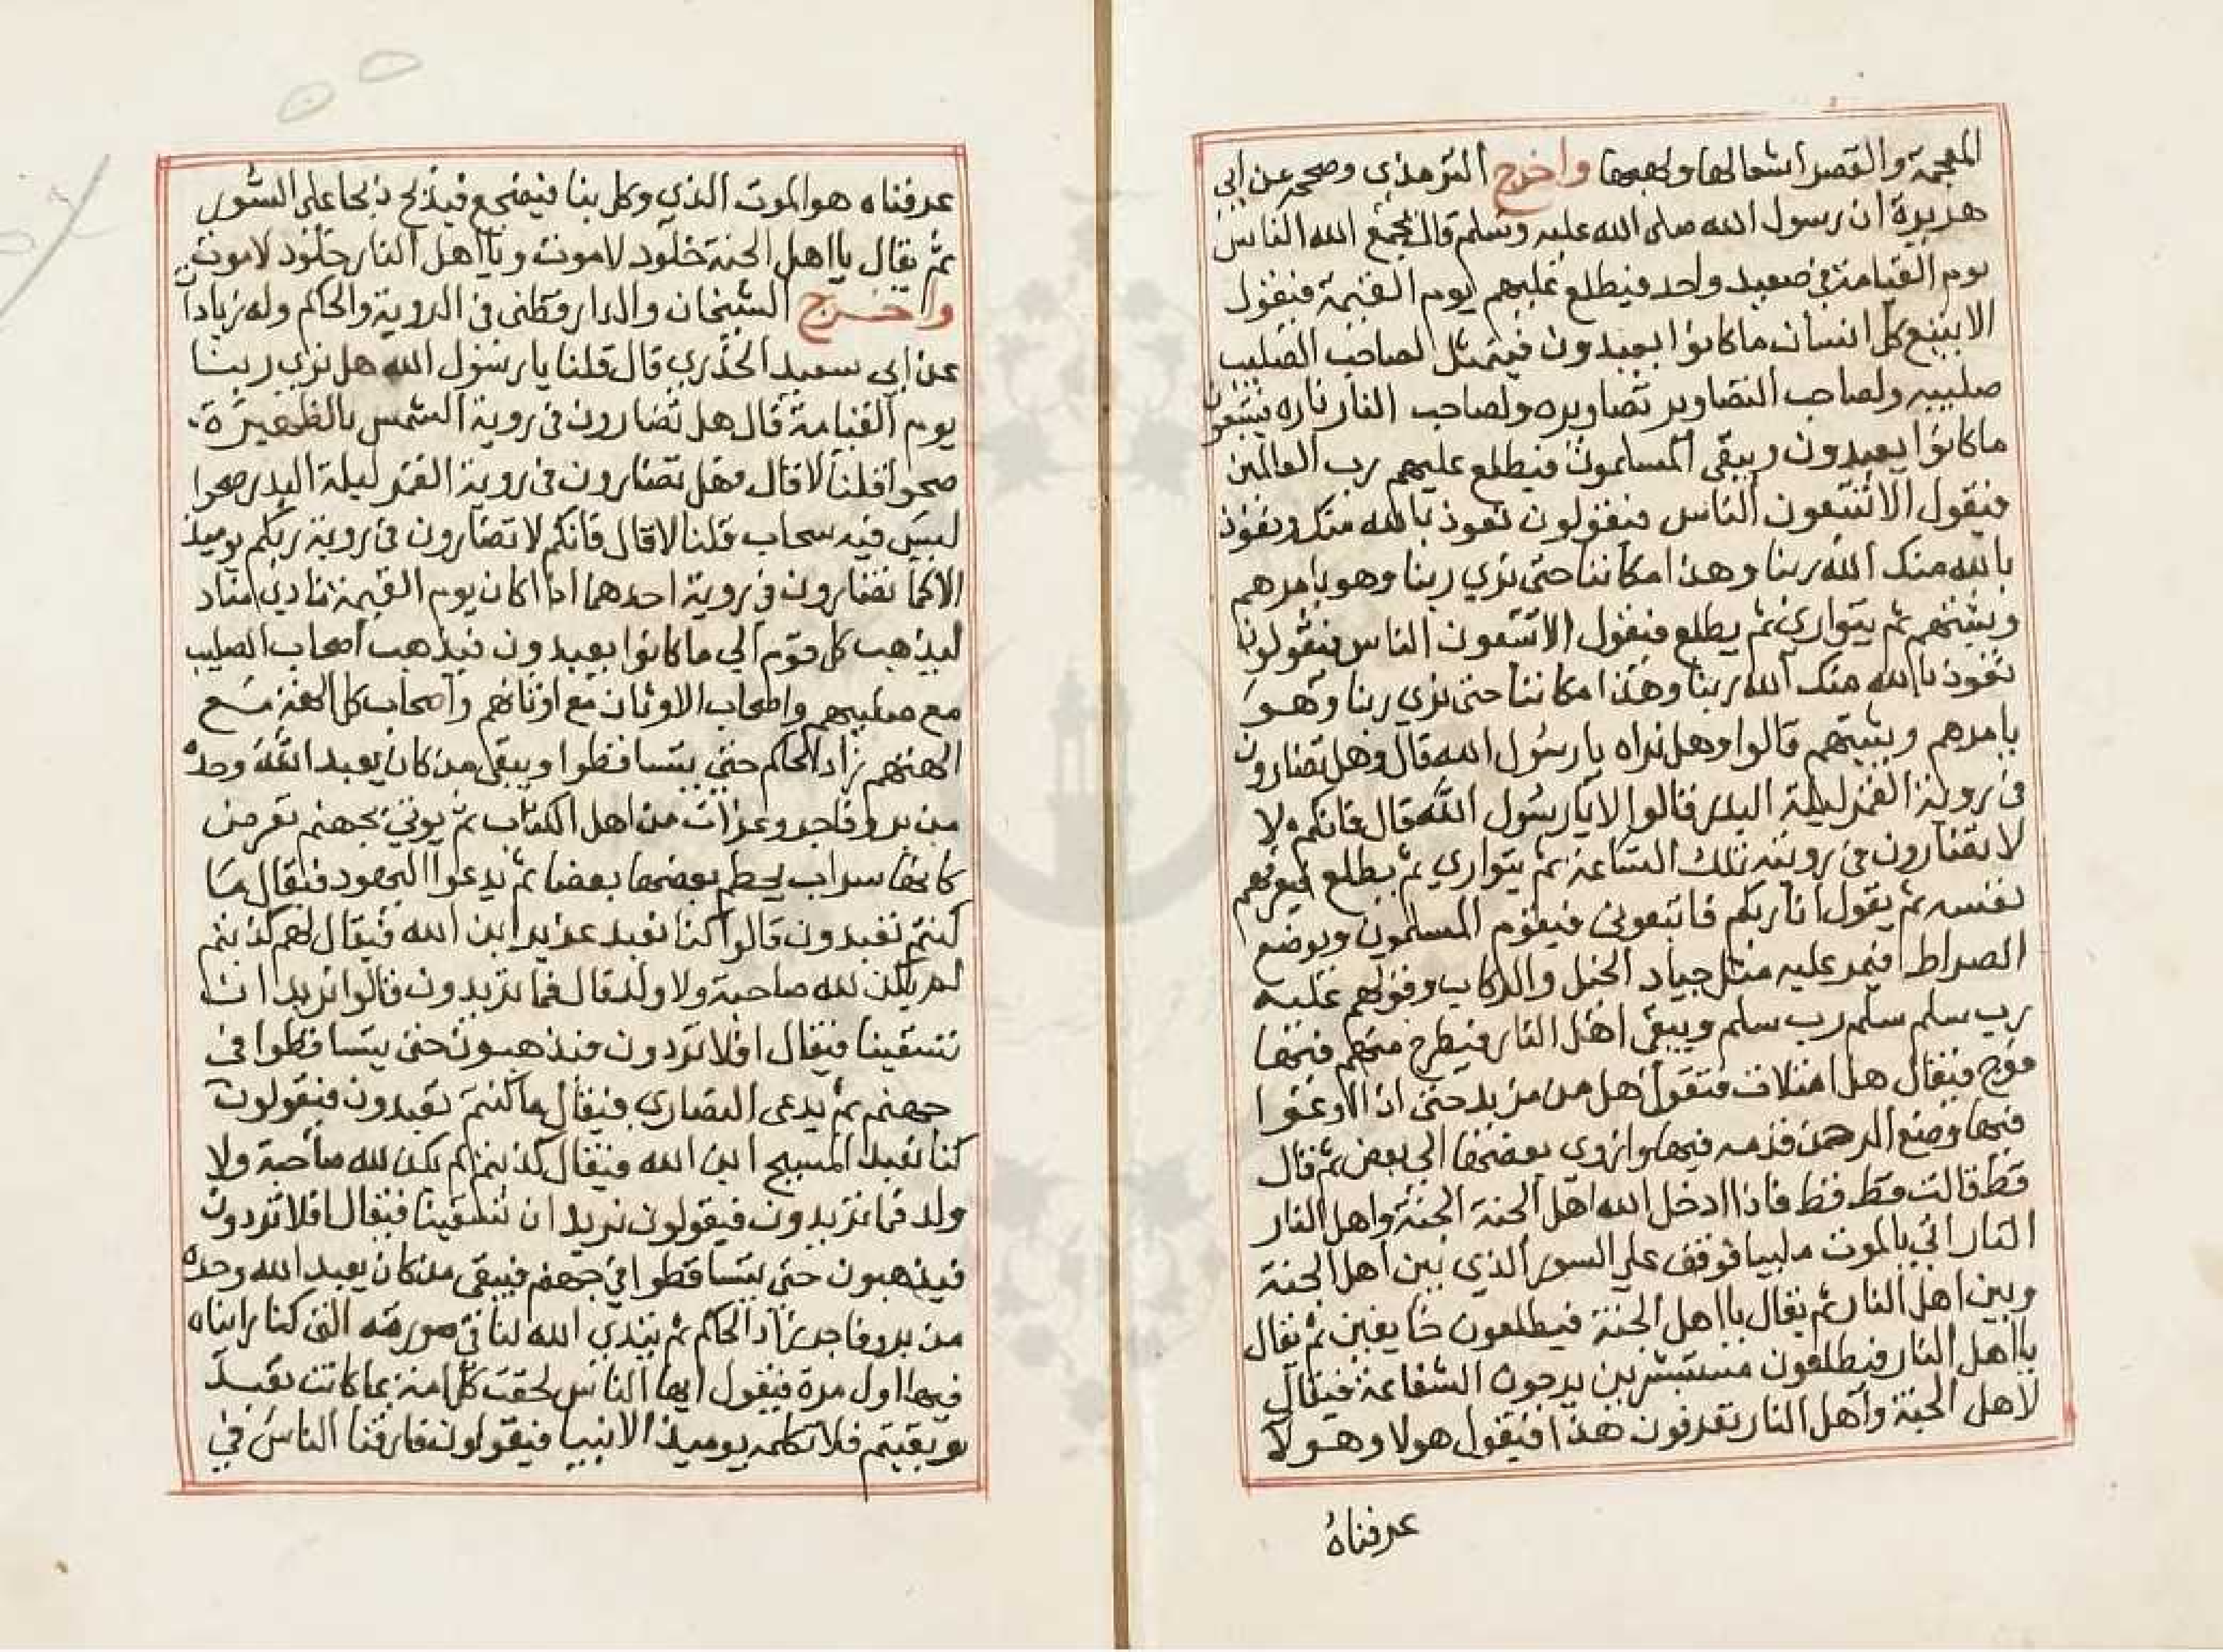 المعجمة والقصر اشتعالها ولهبها واخرج الترمذي وصححه عن ابي
هريرة ان رسول الله صلى الله عليه وسلم قال يجمع الله الناس
يوم القيامة في صعيد واحد فيطلع عليهم يوم القيمة فيقول
الا يتبع كل انسان ما كانوا يعبدون فيتمثل لصاحب الصليب
صليبه ولصاحب التصاوير تصاويره ولصاحب النار ناره فيتبعون
ما كانوا يعبدون ويبقى المسلمون فيطلع عليهم رب العالمين
فيقول الا تتبعون الناس فيقولون نعوذ بالله منك ونعوذ
بالله منك الله ربنا وهذا مكاننا حتى نري ربنا وهو يامرهم
ويثبتهم ثم يتواري ثم يطلع فيقول الا تتبعون الناس فيقولون
نعوذ بالله منك الله ربنا وهذا مكاننا حتى نري ربنا وهو
يامرهم ويثبتهم قالوا وهل نراه يا رسول الله قال وهل تضارون
في روية القمر ليلة البدر قالوا لا يا رسول الله قال فانكم لا
لا تضارون في رويته تلك الساعة ثم يتواري ثم يطلع فيعرفهم
نفسه ثم يقول انا ربكم فاتبعوني فيقوم المسلمون ويوضع
الصراط فيمر عليه مثل جياد الخيل والركاب وقولهم عليه
رب سلم سلم رب سلم ويبقى اهل النار فيطرح منهم فيها
فوج فيقال هل امتلات فتقول هل من مزيد حتى اذا اوعبوا
فيها وضع الرحمن قدمه فيها وانزوى بعضها الي بعض ثم قال
قط قالت قط قط فاذا ادخل الله اهل الجنة الجنة واهل النار
النار اتي بالموت ملبيا فوقف على السور الذي بين اهل الجنة
وبين اهل النار ثم يقال يا اهل الجنة فيطلعون خايفين ثم يقال
يا اهل النار فيطلعون مستبشرين يرجون الشفاعة فيقال
لاهل الجنة واهل النار تعرفون هذا فيقول هولا وهولا
عرفناه
عرفناه هو الموت الذي وكل بنا فيضجع فيذبح ذبحا على السور
ثم يقال يا اهل الجنة خلود لا موت ويا اهل النار خلود لا موت
واخرج الشيخان والدارقطني في الروية والحاكم وله زيادات
عن ابي سعيد الخدري قال قلنا يا رسول الله هل نري ربنا
يوم القيامة قال هل تضارون في روية الشمس بالظهيرة
صحوا قلنا لا قال وهل تضارون في روية القمر ليلة البدر صحوا
ليس فيه سحاب قلنا لا قال فانكم لا تضارون في روية ربكم يوميذ
الا كما تضارون في روية احدهما اذا كان يوم القيمة نادي مناد
ليذهب كل قوم الي ما كانوا يعبدون فيذهب اصحاب الصليب
مع صليبهم واصحاب الاوثان مع اوثانهم واصحاب كل الهة مع
الهتهم زاد الحاكم حتى يتساقطوا ويبقى من كان يعبد الله وحده
من بر وفاجر وغبرات من اهل الكتاب ثم يوتي بجهنم تعرض
كانها سراب يحطم بعضها بعضا ثم يدعوا اليهود فيقال ما
كنتم تعبدون قالوا كنا نعبد عزير ابن الله فيقال لهم كذبتم
لم يكن لله صاحبة ولا ولد قال فما تريدون قالوا نريد ان
تسقينا فيقال افلا تردون فيذهبون حتى يتساقطوا في
جهنم ثم يدعى النصاري فيقال ما كنتم تعبدون فيقولون
كنا نعبد المسيح ابن الله فيقال كذبتم لم يكن لله صاحبة ولا
ولد فما تريدون فيقولون نريد ان تسقينا فيقال افلا تردون
فيذهبون حتى يتساقطوا في جهنم فيبقى من كان يعبد الله وحده
من بر وفاجر زاد الحاكم ثم يتبدي الله لنا في صورته التي كنا رايناه
فيها اول مرة فيقول ايها الناس لحقت كل امة بما كانت تعبد
وبقيتم فلا تكلمه يوميذ الا الانبيا فيقولون فارقنا الناس في